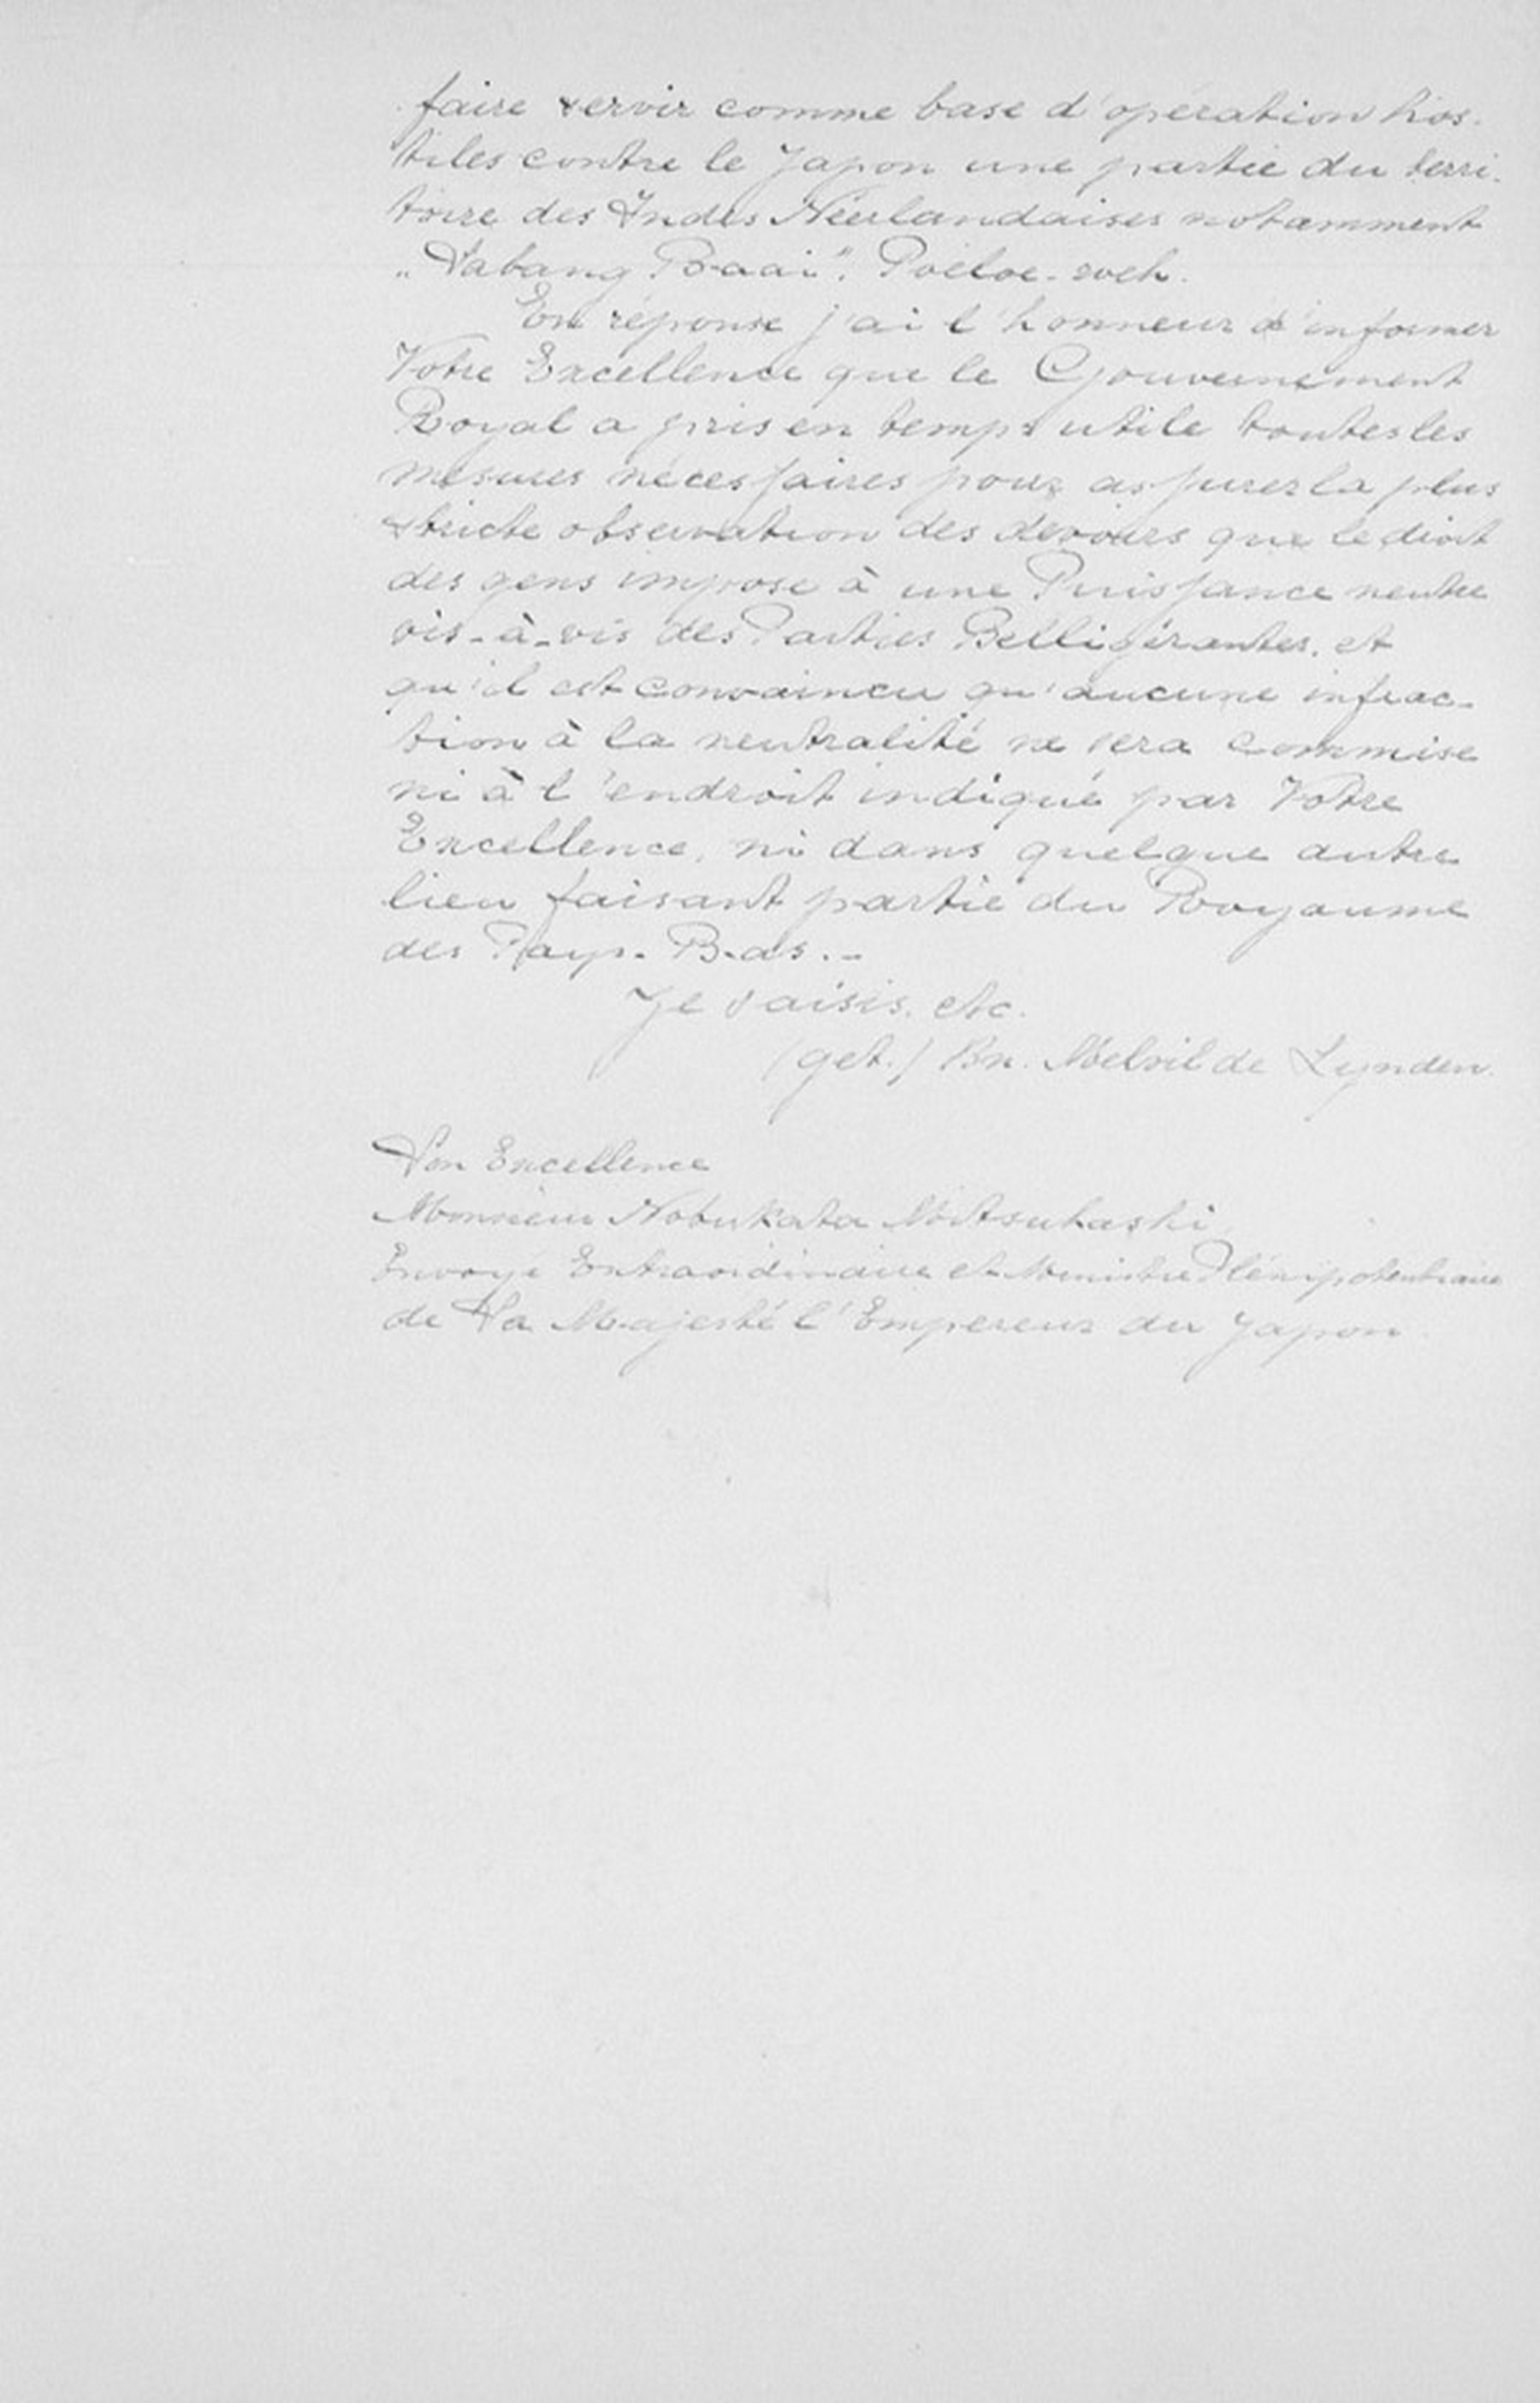 faire servir comme base d'opération hos-
tiles contre le Japon une partie du terri-
toire des Indes Néerlandaises notamment
„Sabang Baai". Poeloe-weh.
En réponse j'ai l'honneur d'informer
Votre Excellence que le Gouvernement
Royal a pris en temps utile toutes les
mesures nécessaires pour assurer la plus
stricte observation des devoirs que le droit
des gens impose à une Puissance neutre
vis-à-vis des Parties Belligérantes, et
qu'il est convaincu qu'aucune infrac-
tion à la neutralité ne sera commise
ni à l'endroit indiqué par Votre
Excellence, ni dans quelque autre
lieu faisant partie du Royaume
des Pays-Bas.-
Je saisis, etc.
(get.) Bn. Melvil de Lynden.
Son Excellence
Monsieur Nobukata Mitsuhashi
Envoyé Extraordinaire et Ministre Plénipotentiaire
de Sa Majesté l'Empereur du Japon.